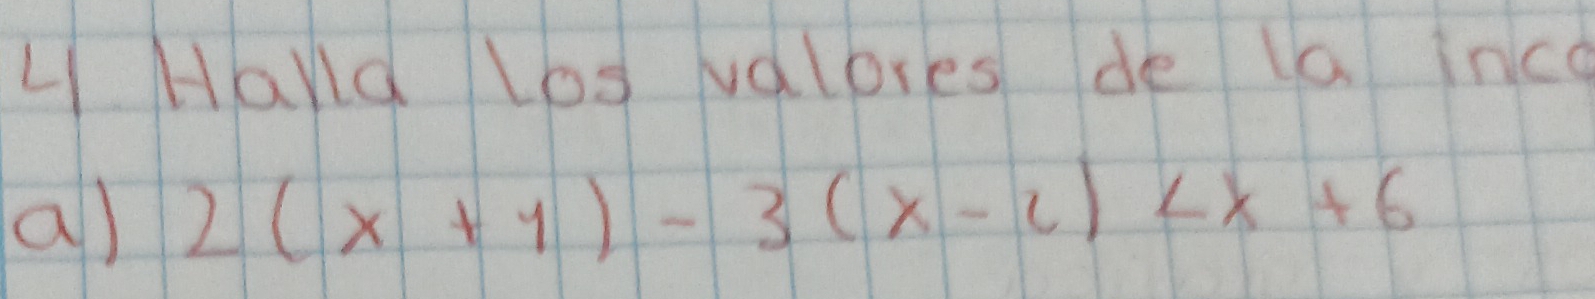 4 Halla los valores de la inco
a) 2(x + 1) - 3(x - 2) < x + 6